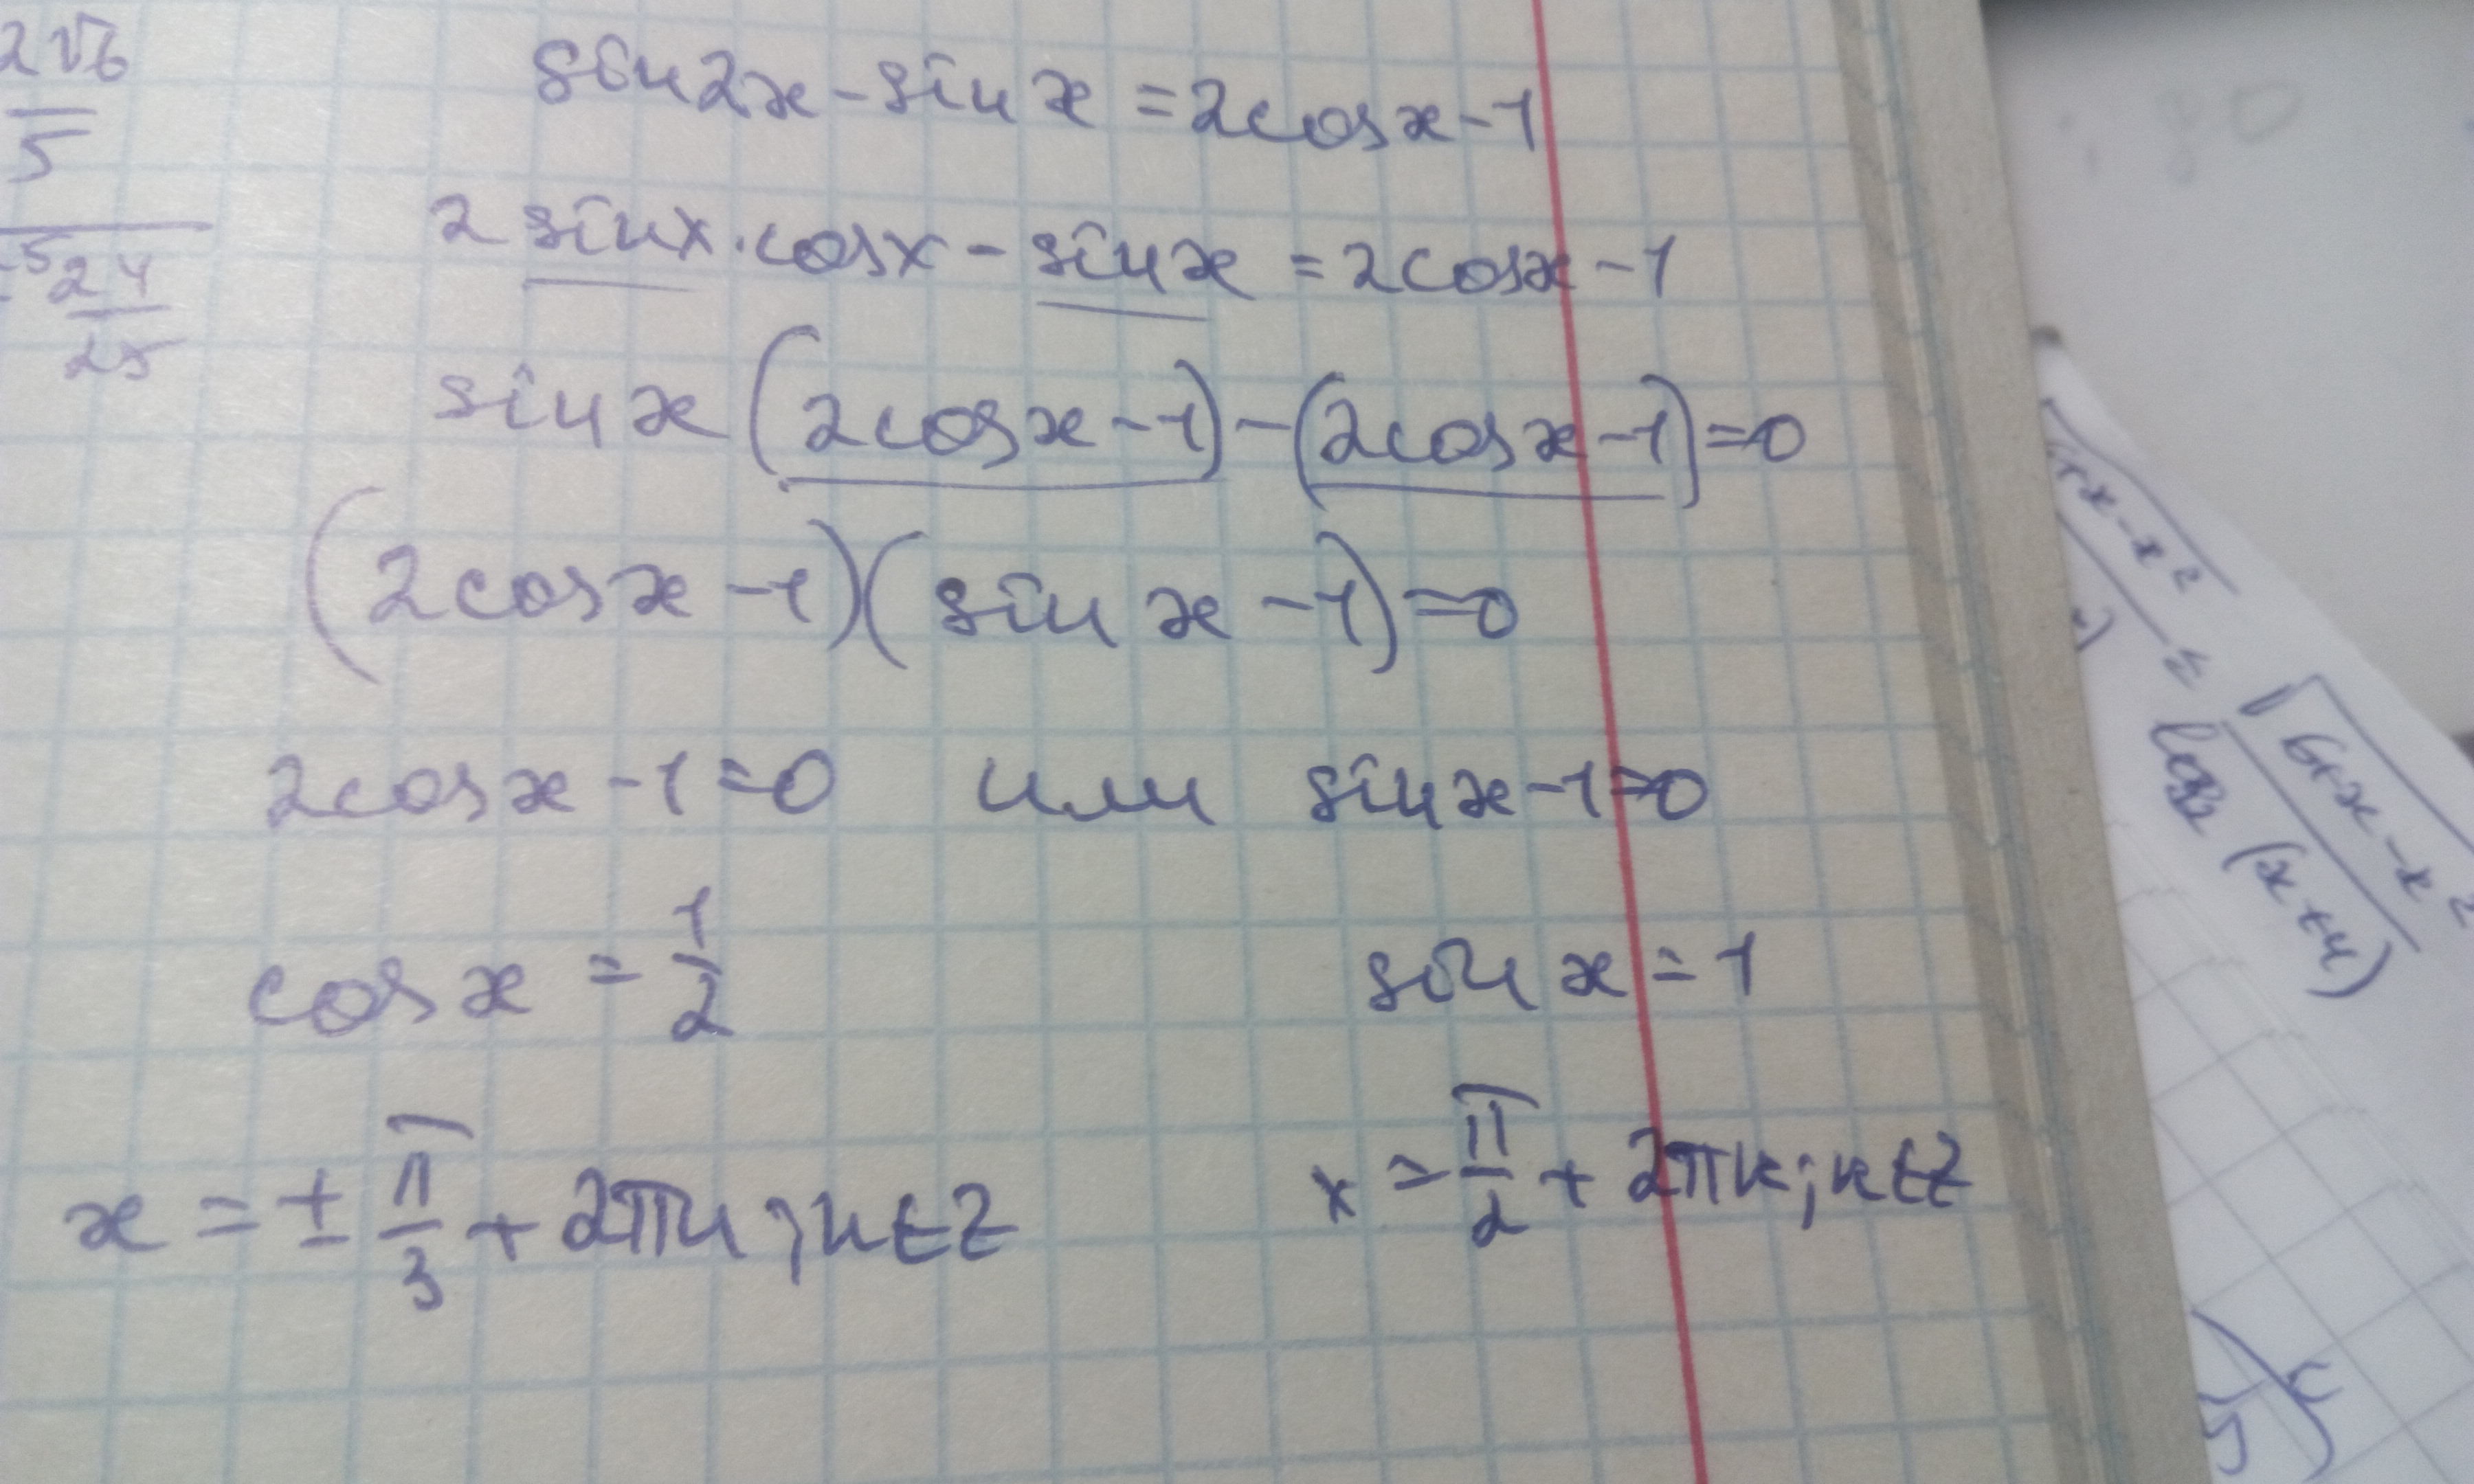 2√6
5
24
25
sin2x - sin x = 2cosx - 1
2 sinx · cosx - sinx = 2cosx - 1
sin x (2cosx - 1) - (2cosx - 1) = 0
(2cosx - 1)(sin x - 1) = 0
2cosx - 1 = 0 или sinx - 1 = 0
cosx = 1/2 sin x = 1
x = ± π/3 + 2πn ; n∈Z x = π/2 + 2πk; k∈Z
6+x-x²
≤
√6+x-x²
log₂(x+4)